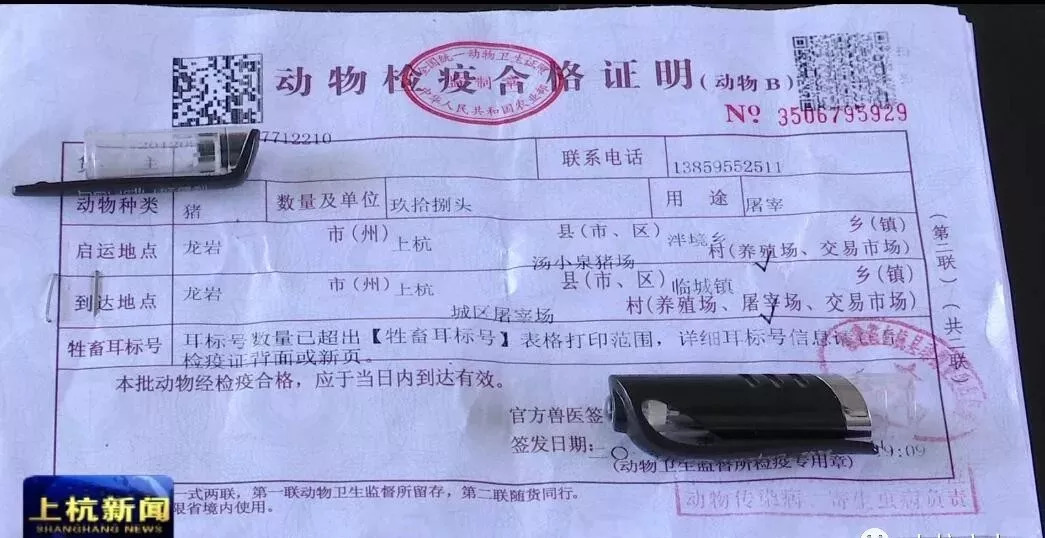 动物检疫合格证明(动物B)
全国统一动物卫生证章
监制章
中华人民共和国农业部
№ 3506795929
7712210
货 主
联系电话 13859552511
动物种类 猪 数量及单位 玖拾捌头 用 途 屠宰
启运地点 龙岩 市(州)上杭 县(市、区)泮境乡 乡(镇)
汤小泉猪场 村(养殖场、交易市场)
到达地点 龙岩 市(州)上杭 县(市、区)临城镇 乡(镇)
城区屠宰场 村(养殖场、屠宰场、交易市场)
牲畜耳标号 耳标号数量已超出【牲畜耳标号】表格打印范围，详细耳标号信息请查看
检疫证背面或新页。
本批动物经检疫合格，应于当日内到达有效。
官方兽医签
签发日期：
9:09
(动物卫生监督所检疫专用章)
(第二联)(共二联)
一式两联，第一联动物卫生监督所留存，第二联随货同行。
限省境内使用。
动物传染病 寄生虫病负责
上杭新闻
SHANGHANG NEWS